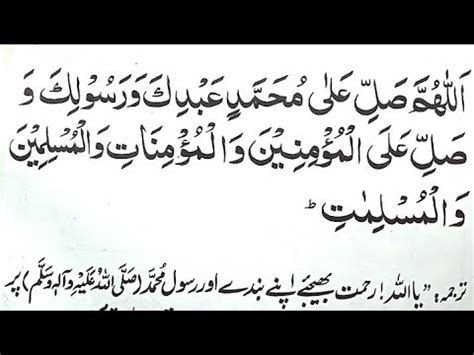 اَللّٰهُمَّ صَلِّ عَلٰى مُحَمَّدٍ عَبْدِكَ وَرَسُوْلِكَ وَ
صَلِّ عَلَى الْمُؤْمِنِيْنَ وَالْمُؤْمِنَاتِ وَالْمُسْلِمِيْنَ
وَالْمُسْلِمٰتِ ؕ
ترجمہ: ”یااللہ! رحمت بھیجئے اپنے بندے اور رسول محمّد (صَلَّی اللہُ عَلَیْہِ وَآلِہٖ وَسَلَّم) پر